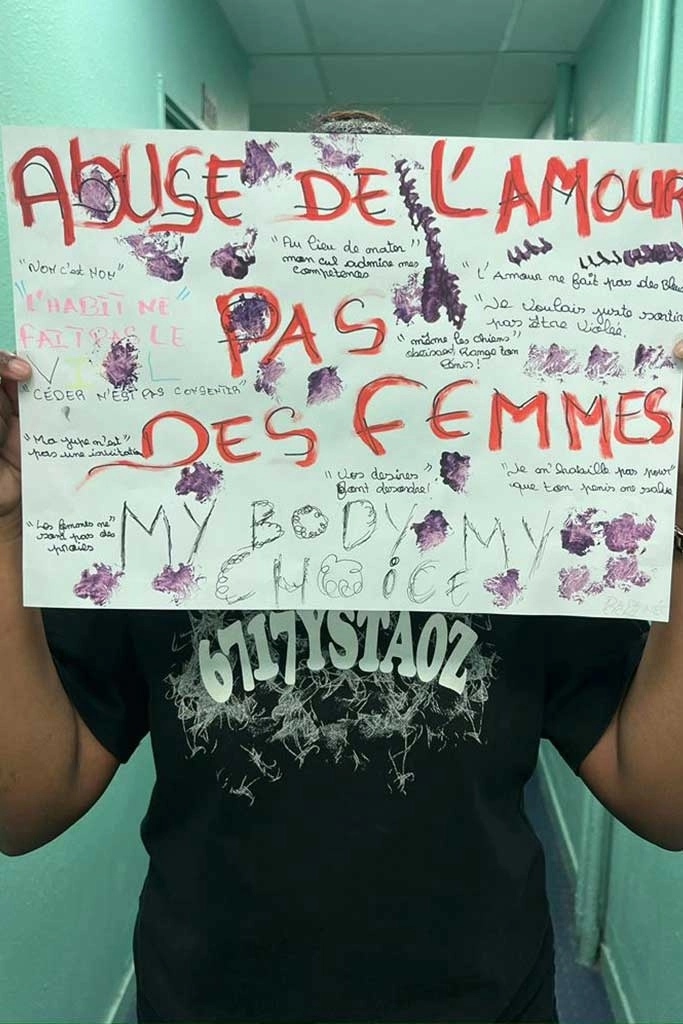 ABUSE DE L'AMOUR
"NON c'est NON"
"Au lieu de mater"
mon cul admire mes
competences
"L'Amour ne fait pas des Bleu
"L'HABIT NE"
FAIT PAS LE
VIOL
PAS
"Je voulais juste sortir
pas être violée.
"même les chiens"
obéissent Range ton
pénis!
"CÉDER N'EST PAS CONSENTIR"
DES FEMMES
"Ma jupe n'est"
pas une invitation
"Vos désires"
font désordre!
"Je m'habille pas pour"
que ton penis me salie
"Les femmes ne"
sont pas des
proies
MY BODY MY
CHOICE
67I7YSTAOZ